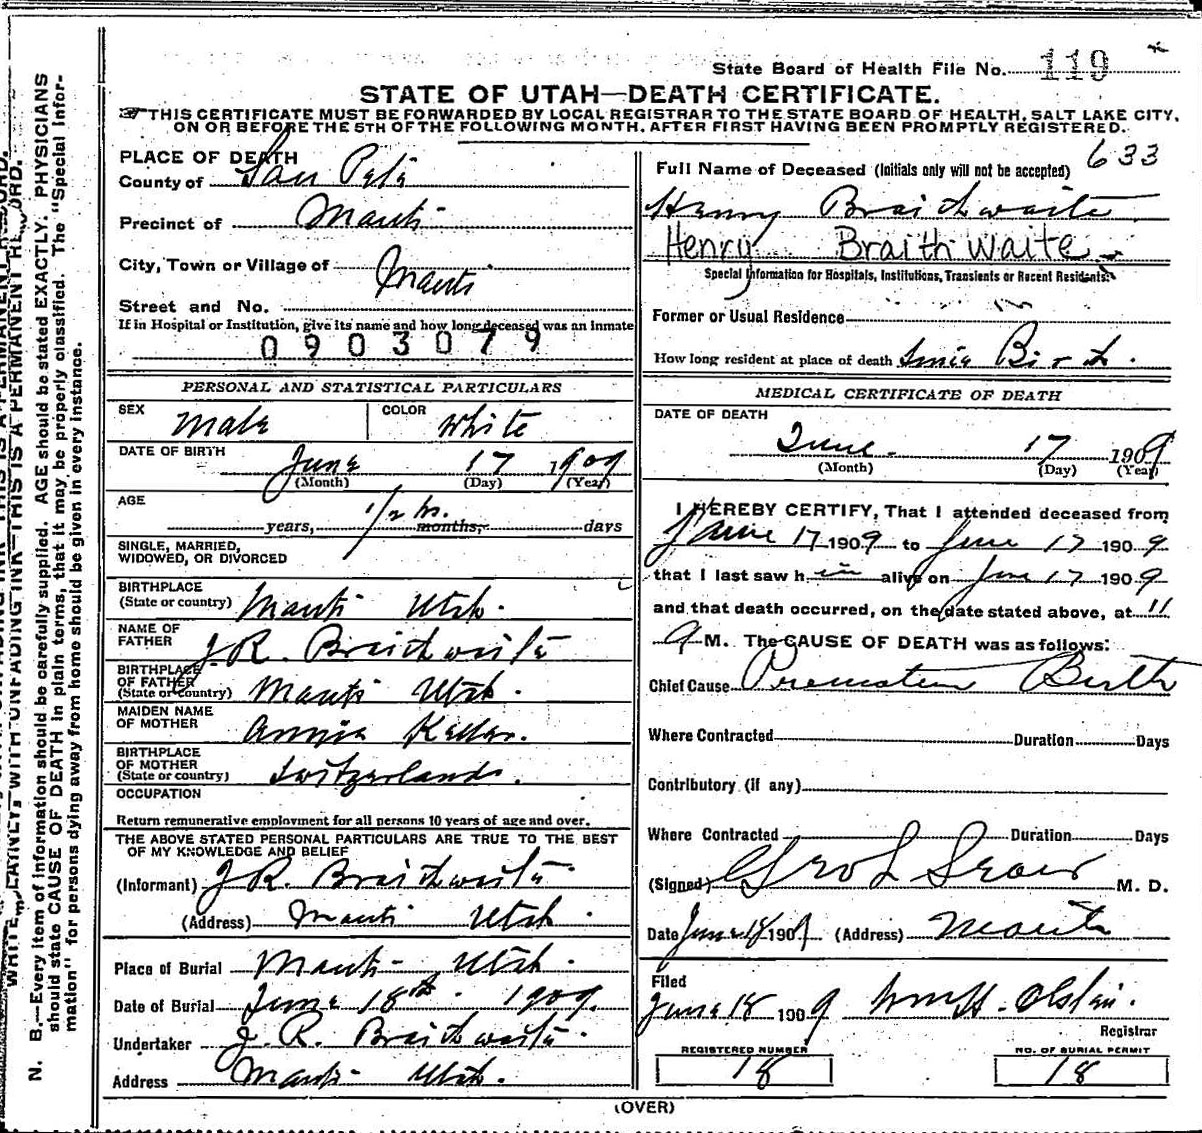 State Board of Health File No. 119
STATE OF UTAH—DEATH CERTIFICATE.
THIS CERTIFICATE MUST BE FORWARDED BY LOCAL REGISTRAR TO THE STATE BOARD OF HEALTH, SALT LAKE CITY,
ON OR BEFORE THE 5TH OF THE FOLLOWING MONTH, AFTER FIRST HAVING BEEN PROMPTLY REGISTERED.
PLACE OF DEATH
County of San Pete
Precinct of Manti
City, Town or Village of Manti
Street and No.
If in Hospital or Institution, give its name and how long deceased was an inmate
0903079
PERSONAL AND STATISTICAL PARTICULARS
SEX Male COLOR White
DATE OF BIRTH
June 17 1909
(Month) (Day) (Year)
AGE
years, 1/2 hr. months, days
SINGLE, MARRIED,
WIDOWED, OR DIVORCED
BIRTHPLACE
(State or country) Manti Utah.
NAME OF
FATHER J.R. Braithwaite
BIRTHPLACE
OF FATHER
(State or country) Manti Utah.
MAIDEN NAME
OF MOTHER Annie Keller.
BIRTHPLACE
OF MOTHER
(State or country) Switzerland.
OCCUPATION
Return remunerative employment for all persons 10 years of age and over.
THE ABOVE STATED PERSONAL PARTICULARS ARE TRUE TO THE BEST
OF MY KNOWLEDGE AND BELIEF
(Informant) J.R. Braithwaite
(Address) Manti Utah.
Place of Burial Manti Utah.
Date of Burial June 18th. 1909.
Undertaker J. R. Braithwaite.
Address Manti Utah.
633
Full Name of Deceased (Initials only will not be accepted)
Henry Braithwaite
Henry Braithwaite
Special Information for Hospitals, Institutions, Transients or Recent Residents:
Former or Usual Residence
How long resident at place of death Since Birth.
MEDICAL CERTIFICATE OF DEATH
DATE OF DEATH
June 17 1909
(Month) (Day) (Year)
I HEREBY CERTIFY, That I attended deceased from
June 17 1909 to June 17 1909
that I last saw him alive on June 17 1909
and that death occurred, on the date stated above, at 11
M. The CAUSE OF DEATH was as follows:
Chief Cause Premature Birth
Where Contracted Duration Days
Contributory (if any)
Where Contracted Duration Days
(Signed) Geo L M. D.
Date June 18 1909 (Address) Manti
Filed
June 18 1909 Wm H.
Registrar
REGISTERED NUMBER
18
NO. OF BURIAL PERMIT
18
(OVER)
WRITE PLAINLY, WITH UNFADING INK—THIS IS A PERMANENT RECORD.
N. B.—Every item of information should be carefully supplied. AGE should be stated EXACTLY. PHYSICIANS
should state CAUSE OF DEATH in plain terms, that it may be properly classified. The "Special Infor-
mation" for persons dying away from home should be given in every instance.